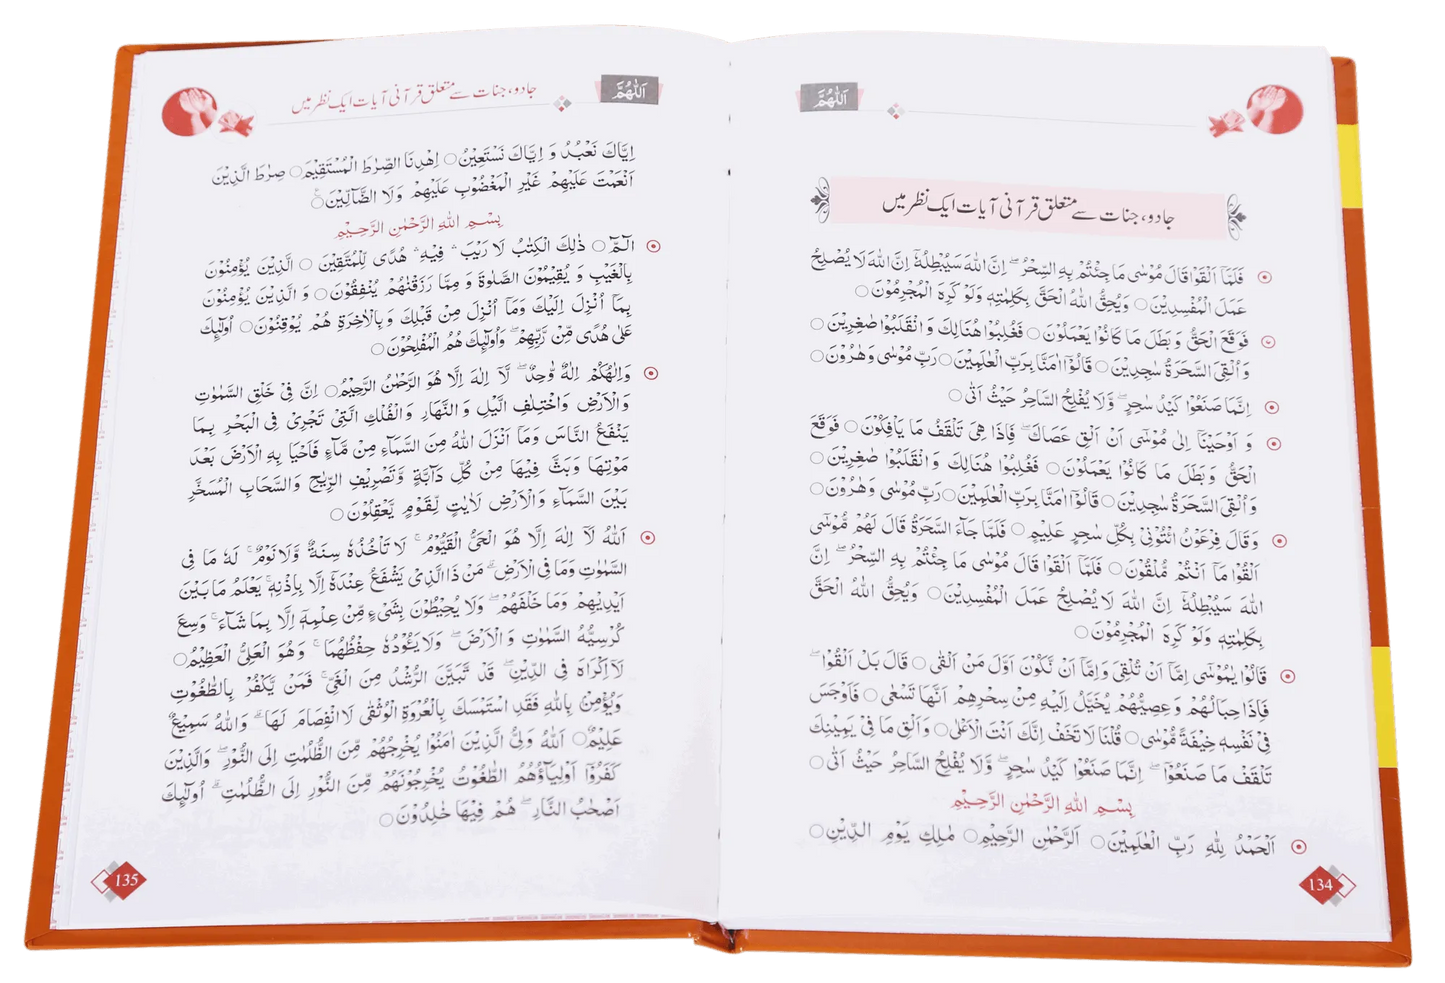 اَللّٰهُمَّ
جادو، جنات سے متعلق قرآنی آیات ایک نظر میں
فَلَمَّاۤ اَلْقَوْا قَالَ مُوْسٰى مَا جِئْتُمْ بِهِ السِّحْرُ ؕ اِنَّ اللّٰهَ سَيُبْطِلُهٗ ؕ اِنَّ اللّٰهَ لَا يُصْلِحُ
عَمَلَ الْمُفْسِدِيْنَ ○ وَيُحِقُّ اللّٰهُ الْحَقَّ بِكَلِمٰتِهٖ وَلَوْ كَرِهَ الْمُجْرِمُوْنَ ○
فَوَقَعَ الْحَقُّ وَ بَطَلَ مَا كَانُوْا يَعْمَلُوْنَ ○ فَغُلِبُوْا هُنَالِكَ وَ انْقَلَبُوْا صٰغِرِيْنَ ○
وَ اُلْقِىَ السَّحَرَةُ سٰجِدِيْنَ ○ قَالُوْۤا اٰمَنَّا بِرَبِّ الْعٰلَمِيْنَ ○ رَبِّ مُوْسٰى وَ هٰرُوْنَ ○
اِنَّمَا صَنَعُوْا كَيْدُ سٰحِرٍ ؕ وَّلَا يُفْلِحُ السَّاحِرُ حَيْثُ اَتٰى ○
وَ اَوْحَيْنَاۤ اِلٰى مُوْسٰۤى اَنْ اَلْقِ عَصَاكَ ۚ فَاِذَا هِىَ تَلْقَفُ مَا يَاْفِكُوْنَ ○ فَوَقَعَ
الْحَقُّ وَ بَطَلَ مَا كَانُوْا يَعْمَلُوْنَ ○ فَغُلِبُوْا هُنَالِكَ وَ انْقَلَبُوْا صٰغِرِيْنَ ○
وَ اُلْقِىَ السَّحَرَةُ سٰجِدِيْنَ ○ قَالُوْۤا اٰمَنَّا بِرَبِّ الْعٰلَمِيْنَ ○ رَبِّ مُوْسٰى وَ هٰرُوْنَ ○
وَ قَالَ فِرْعَوْنُ ائْتُوْنِىْ بِكُلِّ سٰحِرٍ عَلِيْمٍ ○ فَلَمَّا جَآءَ السَّحَرَةُ قَالَ لَهُمْ مُّوْسٰۤى
اَلْقُوْا مَاۤ اَنْتُمْ مُّلْقُوْنَ ○ فَلَمَّاۤ اَلْقَوْا قَالَ مُوْسٰى مَا جِئْتُمْ بِهِ السِّحْرُ ؕ اِنَّ
اللّٰهَ سَيُبْطِلُهٗ ؕ اِنَّ اللّٰهَ لَا يُصْلِحُ عَمَلَ الْمُفْسِدِيْنَ ○ وَيُحِقُّ اللّٰهُ الْحَقَّ
بِكَلِمٰتِهٖ وَلَوْ كَرِهَ الْمُجْرِمُوْنَ ○
قَالُوْا يٰمُوْسٰۤى اِمَّاۤ اَنْ تُلْقِىَ وَ اِمَّاۤ اَنْ نَّكُوْنَ اَوَّلَ مَنْ اَلْقٰى ○ قَالَ بَلْ اَلْقُوْا ۚ
فَاِذَا حِبَالُهُمْ وَ عِصِيُّهُمْ يُخَيَّلُ اِلَيْهِ مِنْ سِحْرِهِمْ اَنَّهَا تَسْعٰى ○ فَاَوْجَسَ
فِىْ نَفْسِهٖ خِيْفَةً مُّوْسٰى ○ قُلْنَا لَا تَخَفْ اِنَّكَ اَنْتَ الْاَعْلٰى ○ وَ اَلْقِ مَا فِىْ يَمِيْنِكَ
تَلْقَفْ مَا صَنَعُوْا ؕ اِنَّمَا صَنَعُوْا كَيْدُ سٰحِرٍ ؕ وَّلَا يُفْلِحُ السَّاحِرُ حَيْثُ اَتٰى ○
بِسْمِ اللّٰهِ الرَّحْمٰنِ الرَّحِيْمِ
اَلْحَمْدُ لِلّٰهِ رَبِّ الْعٰلَمِيْنَ ○ الرَّحْمٰنِ الرَّحِيْمِ ○ مٰلِكِ يَوْمِ الدِّيْنِ ○
134
اَللّٰهُمَّ
جادو، جنات سے متعلق قرآنی آیات ایک نظر میں
اِيَّاكَ نَعْبُدُ وَ اِيَّاكَ نَسْتَعِيْنُ ○ اِهْدِنَا الصِّرٰطَ الْمُسْتَقِيْمَ ○ صِرٰطَ الَّذِيْنَ
اَنْعَمْتَ عَلَيْهِمْ غَيْرِ الْمَغْضُوْبِ عَلَيْهِمْ وَلَا الضَّآلِّيْنَ ○
بِسْمِ اللّٰهِ الرَّحْمٰنِ الرَّحِيْمِ
الٓمّٓ ○ ذٰلِكَ الْكِتٰبُ لَا رَيْبَ ۛ فِيْهِ ۛ هُدًى لِّلْمُتَّقِيْنَ ○ الَّذِيْنَ يُؤْمِنُوْنَ
بِالْغَيْبِ وَ يُقِيْمُوْنَ الصَّلٰوةَ وَ مِمَّا رَزَقْنٰهُمْ يُنْفِقُوْنَ ○ وَ الَّذِيْنَ يُؤْمِنُوْنَ
بِمَاۤ اُنْزِلَ اِلَيْكَ وَمَاۤ اُنْزِلَ مِنْ قَبْلِكَ وَ بِالْاٰخِرَةِ هُمْ يُوْقِنُوْنَ ○ اُولٰٓئِكَ
عَلٰى هُدًى مِّنْ رَّبِّهِمْ ۗ وَ اُولٰٓئِكَ هُمُ الْمُفْلِحُوْنَ ○
وَ اِلٰهُكُمْ اِلٰهٌ وّٰحِدٌ ۚ لَاۤ اِلٰهَ اِلَّا هُوَ الرَّحْمٰنُ الرَّحِيْمُ ○ اِنَّ فِىْ خَلْقِ السَّمٰوٰتِ
وَ الْاَرْضِ وَ اخْتِلٰفِ الَّيْلِ وَ النَّهَارِ وَ الْفُلْكِ الَّتِىْ تَجْرِىْ فِى الْبَحْرِ بِمَا
يَنْفَعُ النَّاسَ وَ مَاۤ اَنْزَلَ اللّٰهُ مِنَ السَّمَآءِ مِنْ مَّآءٍ فَاَحْيَا بِهِ الْاَرْضَ بَعْدَ
مَوْتِهَا وَ بَثَّ فِيْهَا مِنْ كُلِّ دَآبَّةٍ وَّ تَصْرِيْفِ الرِّيٰحِ وَ السَّحَابِ الْمُسَخَّرِ
بَيْنَ السَّمَآءِ وَ الْاَرْضِ لَاٰيٰتٍ لِّقَوْمٍ يَّعْقِلُوْنَ ○
اَللّٰهُ لَاۤ اِلٰهَ اِلَّا هُوَ الْحَىُّ الْقَيُّوْمُ ۚ لَا تَاْخُذُهٗ سِنَةٌ وَّلَا نَوْمٌ ؕ لَهٗ مَا فِى
السَّمٰوٰتِ وَمَا فِى الْاَرْضِ ؕ مَنْ ذَا الَّذِىْ يَشْفَعُ عِنْدَهٗۤ اِلَّا بِاِذْنِهٖ ؕ يَعْلَمُ مَا بَيْنَ
اَيْدِيْهِمْ وَمَا خَلْفَهُمْ ۚ وَلَا يُحِيْطُوْنَ بِشَىْءٍ مِّنْ عِلْمِهٖۤ اِلَّا بِمَا شَآءَ ۚ وَسِعَ
كُرْسِيُّهُ السَّمٰوٰتِ وَ الْاَرْضَ ۚ وَلَا يَـُٔوْدُهٗ حِفْظُهُمَا ۚ وَهُوَ الْعَلِىُّ الْعَظِيْمُ ○
لَاۤ اِكْرَاهَ فِى الدِّيْنِ ۙ قَدْ تَّبَيَّنَ الرُّشْدُ مِنَ الْغَىِّ ۚ فَمَنْ يَّكْفُرْ بِالطَّاغُوْتِ
وَيُؤْمِنْۢ بِاللّٰهِ فَقَدِ اسْتَمْسَكَ بِالْعُرْوَةِ الْوُثْقٰى لَا انْفِصَامَ لَهَا ؕ وَاللّٰهُ سَمِيْعٌ
عَلِيْمٌ ○ اَللّٰهُ وَلِىُّ الَّذِيْنَ اٰمَنُوْا يُخْرِجُهُمْ مِّنَ الظُّلُمٰتِ اِلَى النُّوْرِ ؕ وَالَّذِيْنَ
كَفَرُوْۤا اَوْلِيٰٓـُٔهُمُ الطَّاغُوْتُ يُخْرِجُوْنَهُمْ مِّنَ النُّوْرِ اِلَى الظُّلُمٰتِ ؕ اُولٰٓئِكَ
اَصْحٰبُ النَّارِ ۚ هُمْ فِيْهَا خٰلِدُوْنَ ○
135